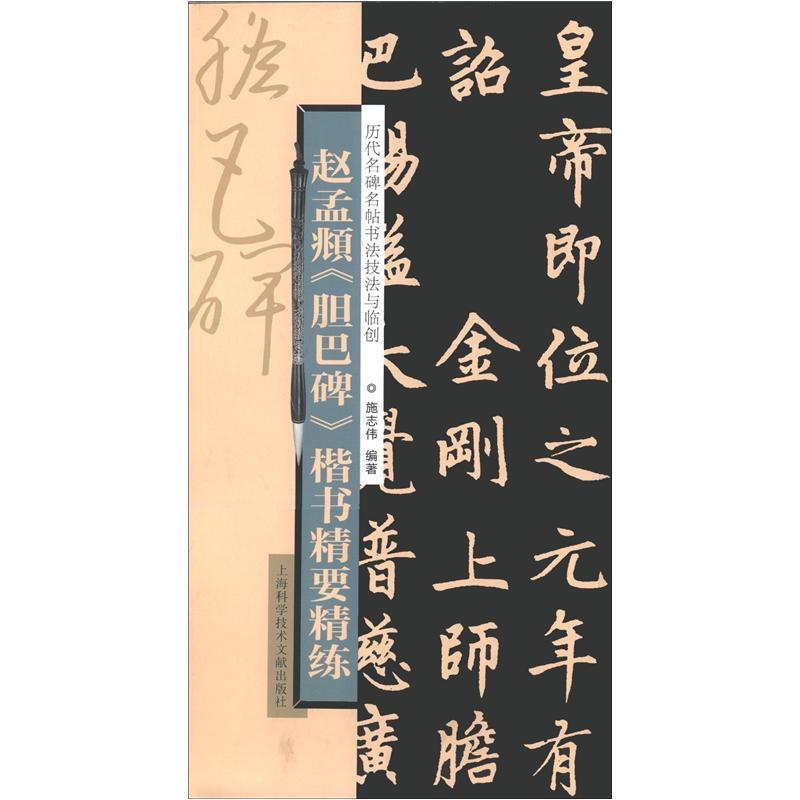 皇帝即位之元年有
詔金剛上師膽
巴賜謚大覺普慈廣
历代名碑名帖书法技法与临创
◎ 施志伟 编著
赵孟頫《胆巴碑》楷书精要精练
胆巴碑
上海科学技术文献出版社